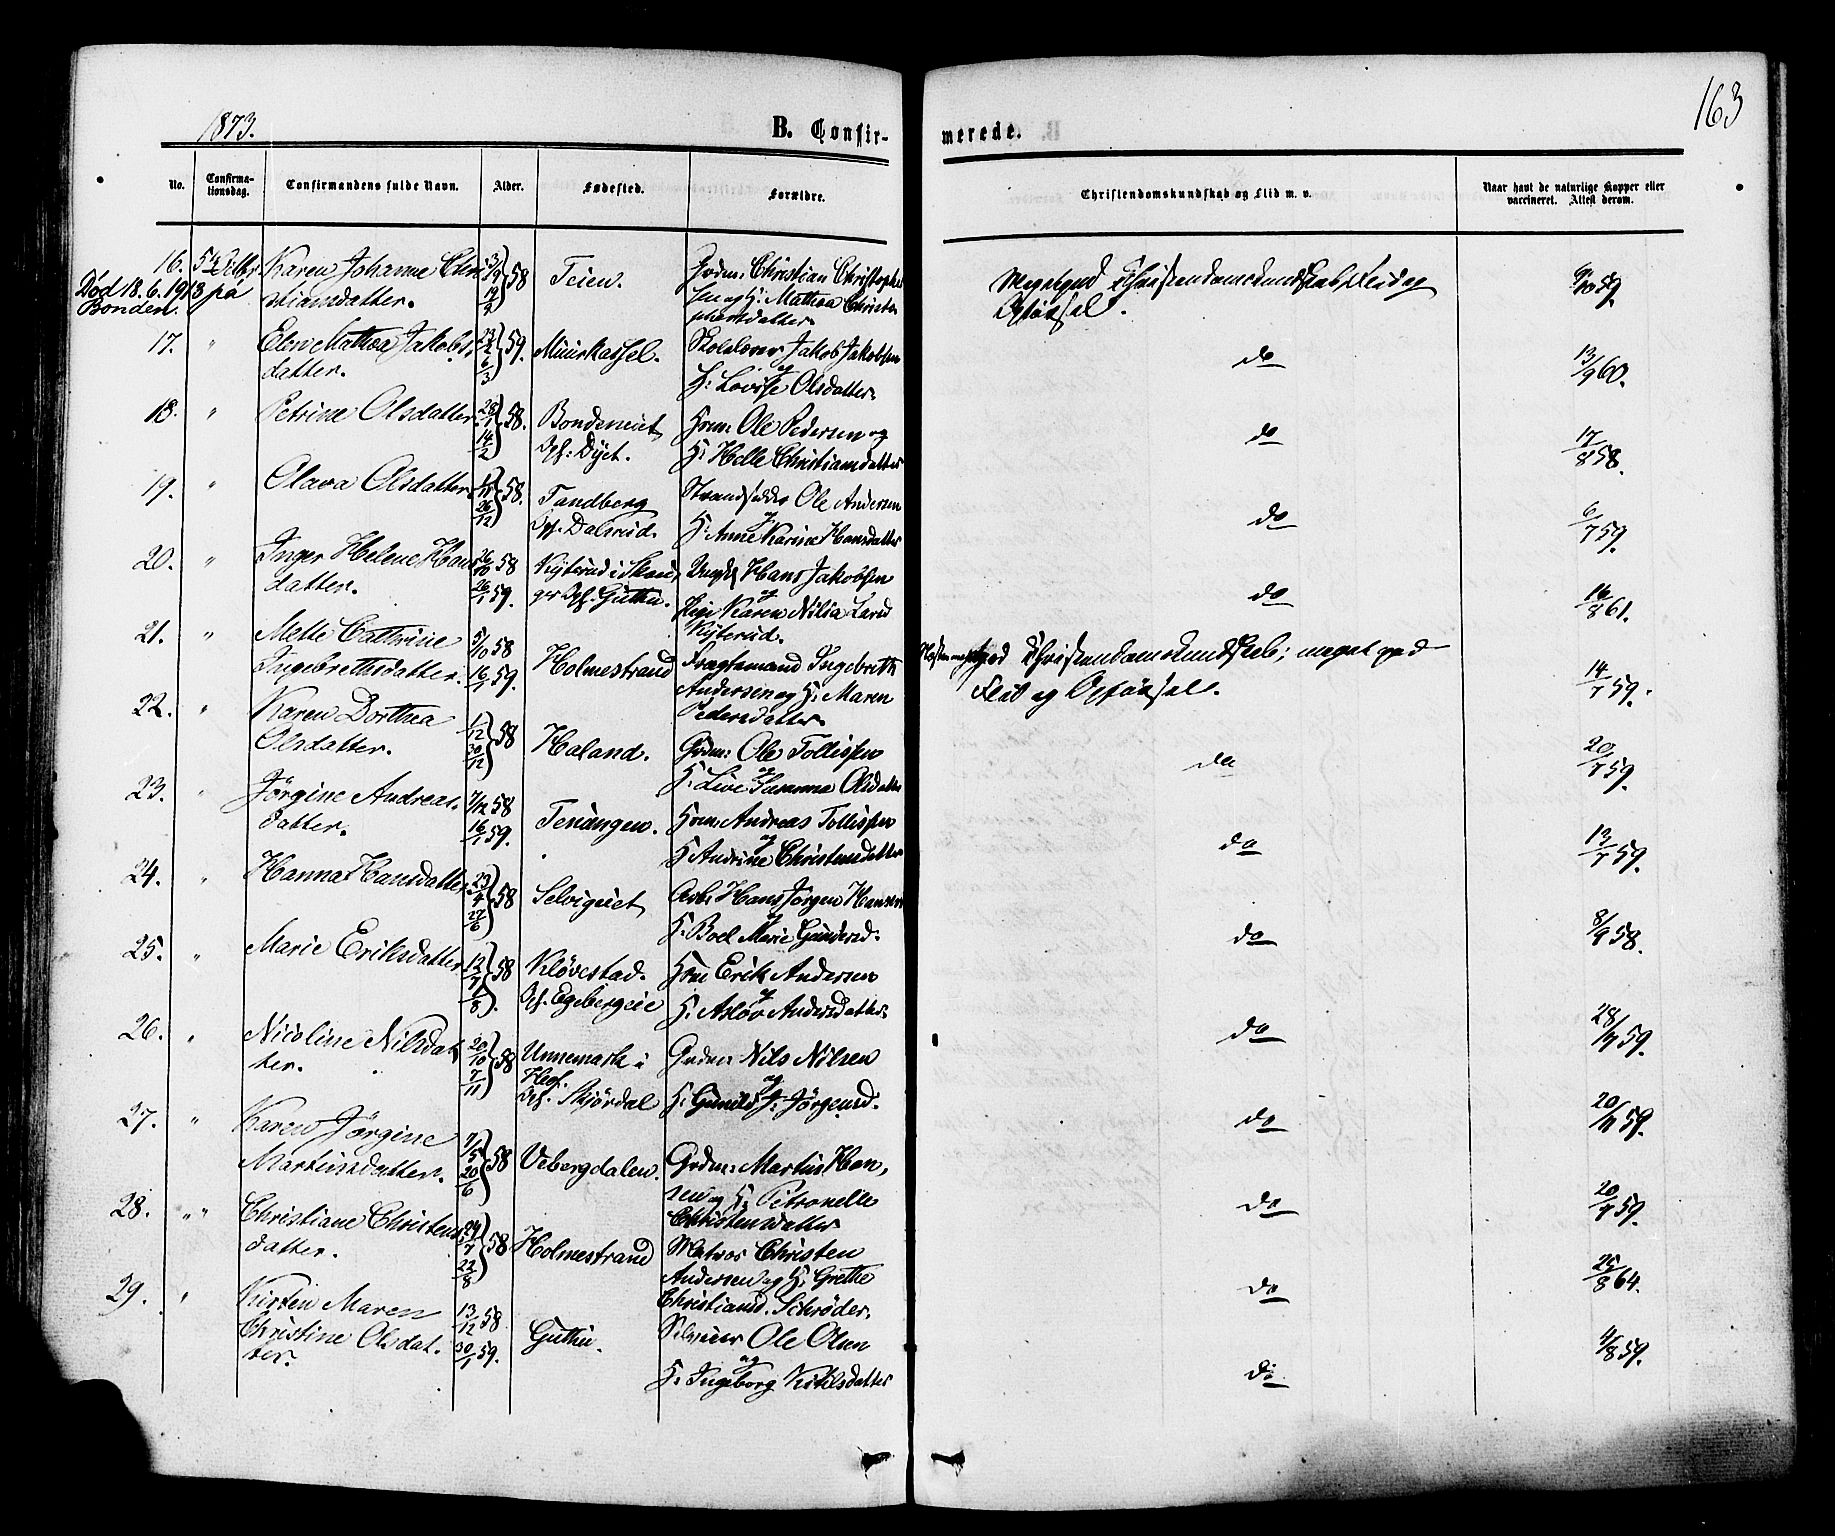 163
1873.
B. Confir-
merede.
No.
Confirma-
tionsdag.
Confirmandens fulde Navn.
Alder.
Fødested.
Forældre.
Christendomskundskab og Flid m. v.
Naar havt de naturlige Kopper eller
vaccineret. Attest derom.
16. 5 Octbr. Karen Johanne Chri
stiansdatter. 58 Teien. Grdm: Christian Christophe
sen og H: Mathea Christo
phersdatter
Død 18.6.1913 på
Bonden.
Megetgod Christendomskundskab, Flid og
Opførsel.
17. " Elen Mathea Jakobs
datter. 23/2 6/3 59. Muirkassel. Skolelærer Jakob Jakobsen
og
H: Lovise Olsdatter.
do 13/9 60.
18. " Petrine Olsdatter 28/1 14/2 58. Bondeneiet
Opf: Dyet. Hsm: Ole Pedersen og
H: Helle Christiansdatter
do 17/8 58.
19. " Olava Olsdatter 26/12 58. Tandberg
Opf. Dalsrud. Strandsidder Ole Andersen
og
H: Anne Karine Hansdatter
do 6/7 59.
20. " Inger Helene Hans
datter. 26/10 58 26/1 59. Kyterud i Skou
ger Opf. Guthu. Ungkl Hans Jakobsen
og
Pige Karen Nilia Larsd
Kyterud.
do 16/8 61.
21. " Mette Cathrine
Ingebretsdatter. 5/10 58 16/1 59. Holmestrand Fragtemand Ingebreth
Andersen og H: Maren
Pedersdatter
Næsten megetgod Christendomskundskab; meget god
Flid og Opførsel. 14/7 59.
22. " Karen Dorthea
Olsdatter. 1/12 30/12 58 Haland. Grdm: Ole Tollefsen
og
H. Live Susanna Olsdatter
do 20/7 59.
23. " Jørgine Andreas
datter. 7/12 58 16/1 59. Teriangen. Hsm: Andreas Tollefsen
og
H Andrine Christensdatter
do 13/7 59.
24. " Hanna Hansdatter 23/4 27/6 58 Selvigeiet Arb: Hans Jørgen Hansen
og
H: Boel Marie Gundersd.
do 8/9 58.
25. " Marie Eriksdatter 12/7 1/8 58 Kløvestad.
Opf. Egebergeie Hsm Erik Andersen
og
H. Asløv Andersdatter.
do 28/7 59.
26. " Nicoline Nilsdat
ter. 20/10 7/11 58 Unnemark i
Hof.
Opf. Skjørdal Grdm: Nils Nilsen
og
H: Gunild J. Jørgensd.
do 20/7 59.
27. " Karen Jørgine
Martinsdatter. 7/5 20/6 58 Vebergdalen. Grdm: Martin Han
sen og H. Petronelle
Christensdatter
do 20/7 59.
28. " " Christiane Christens
datter. 24/7 22/8 58 Holmestrand Matros Christen
Andersen og H: Grethe
Christiansd. Schrøder.
do 25/8 64.
29. " Kirsten Maren
Christine Olsdat
ter. 13/12 58. 30/1 59. Guthu. Selveier Ole Olsen
og
H: Ingeborg Kittilsdatter
do 4/8 59.